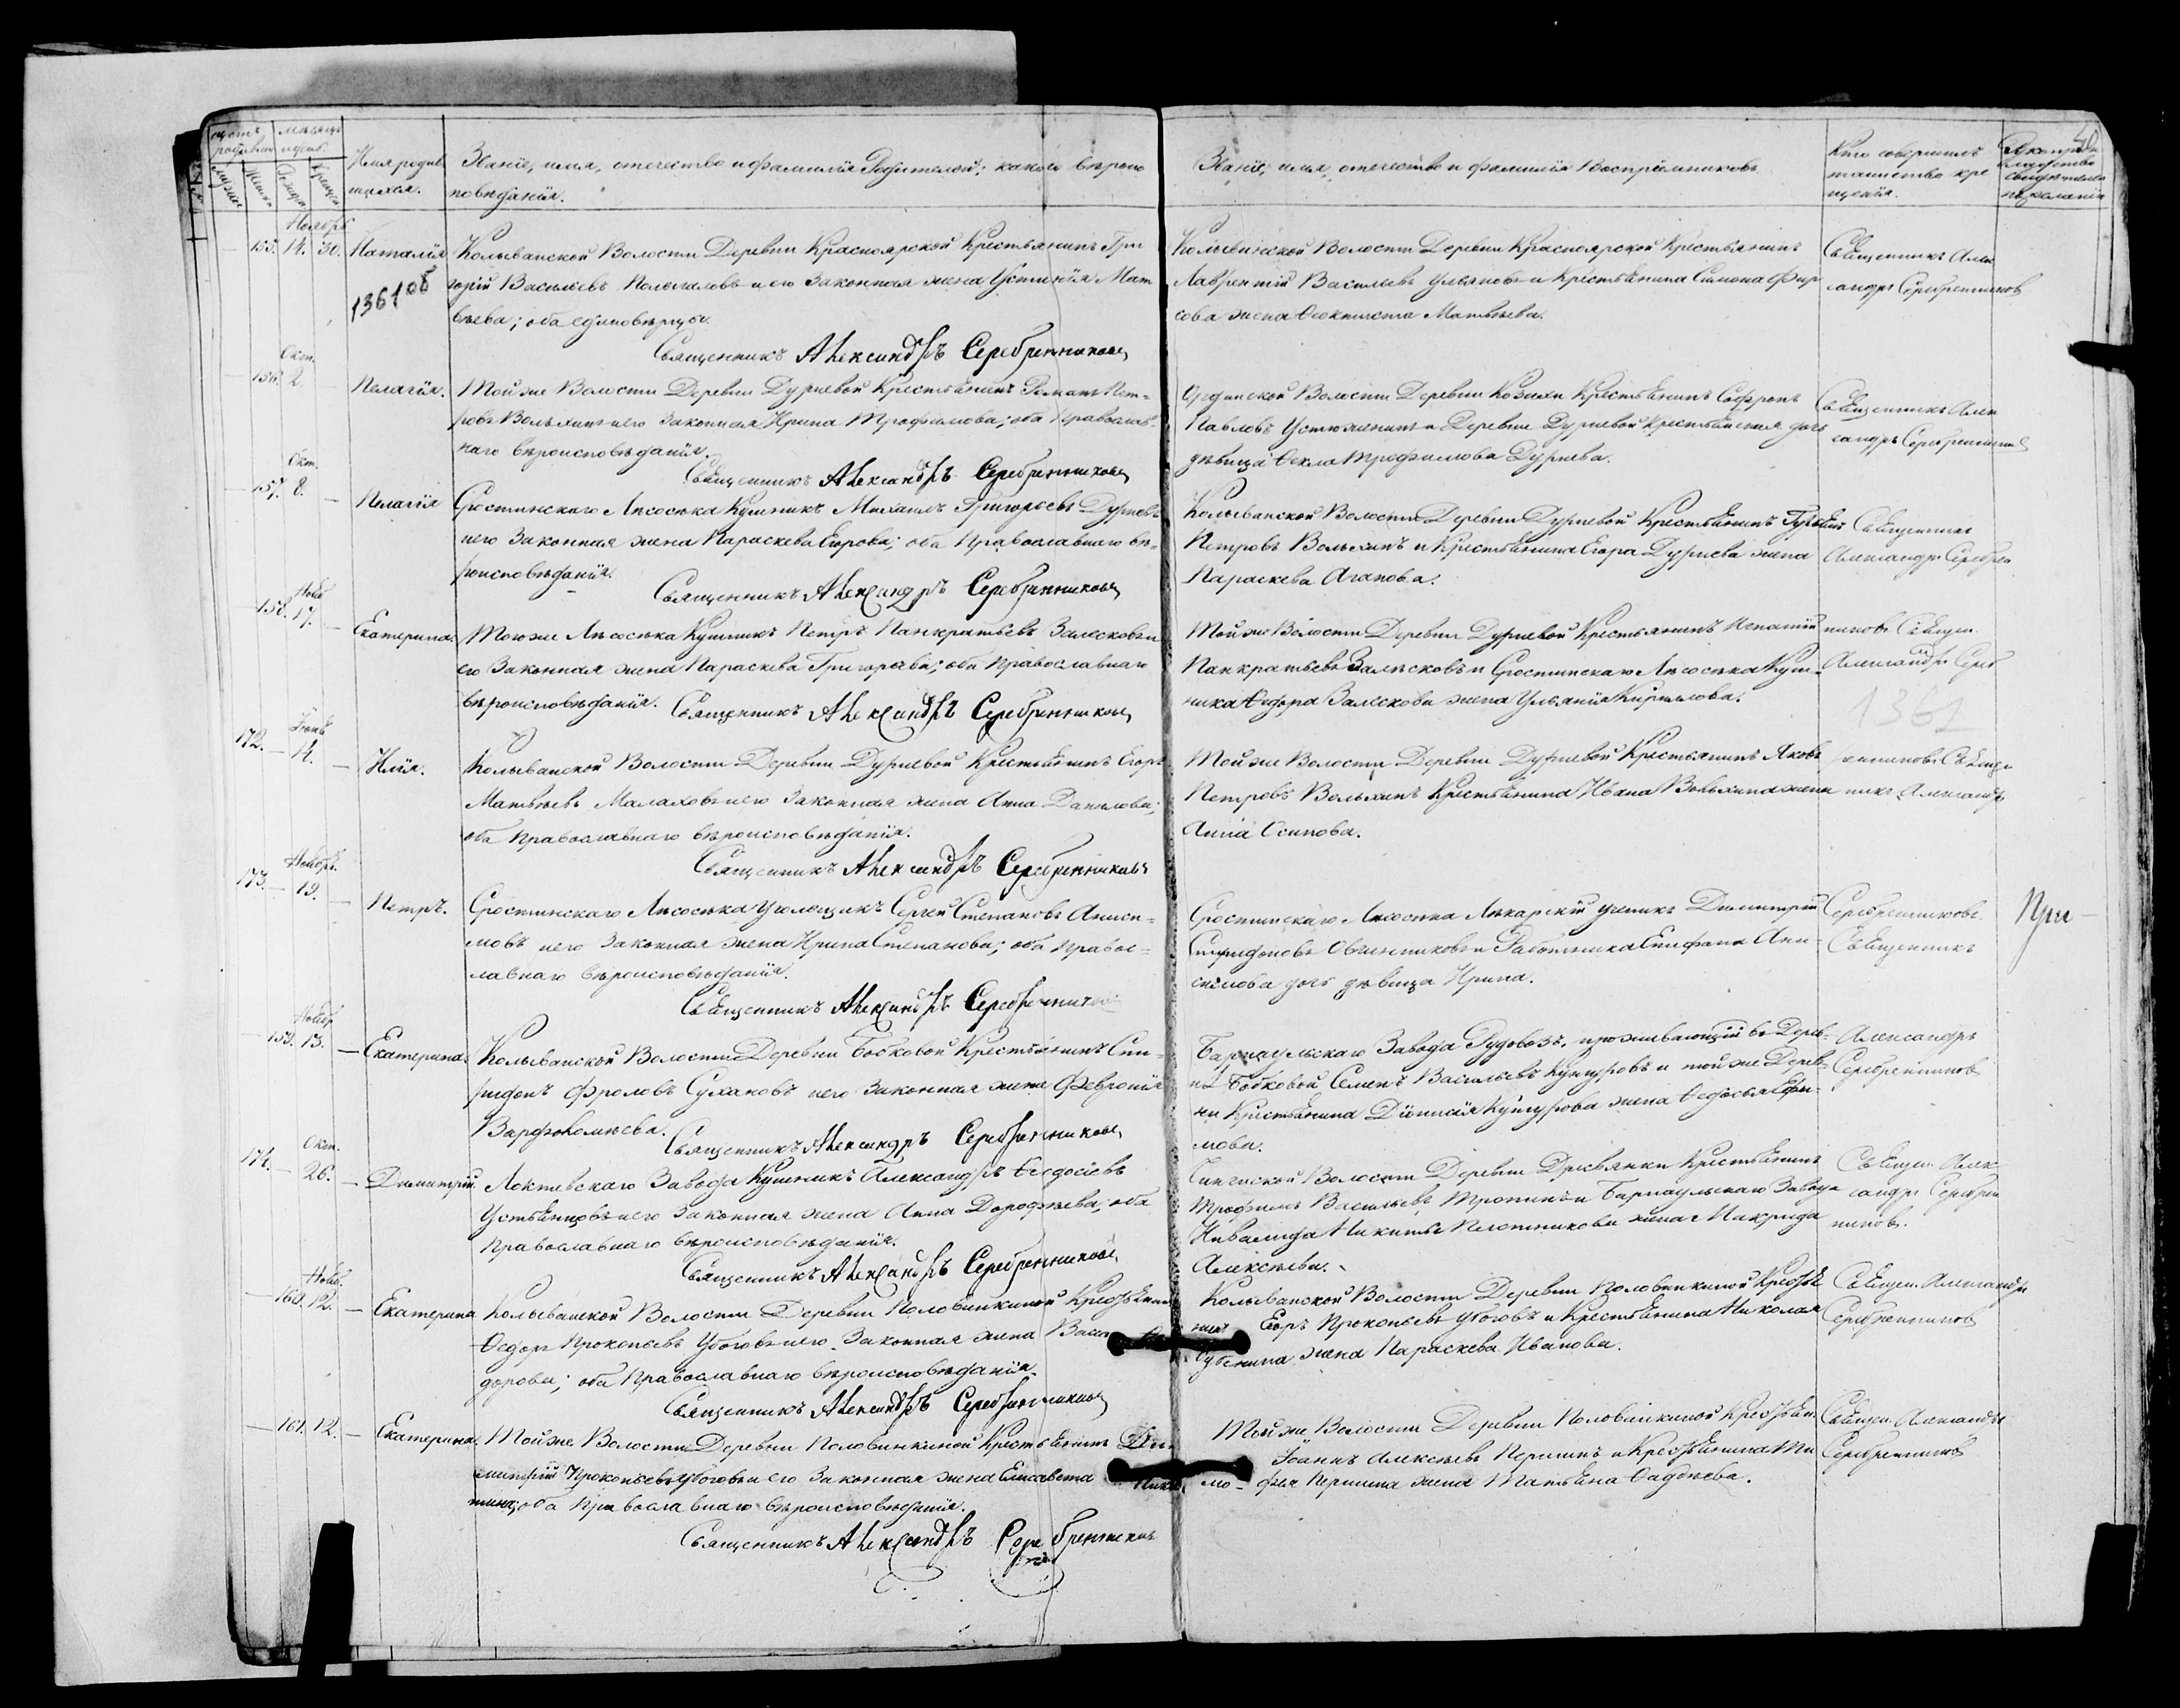 Счетъ родившихся
Мѣсяцъ и день
Мужескъ
Женскъ
Рожденія
Крещенія
Имя родив
шихся.
Званіе, имя, отечество и фамилія Родителей; какого вѣроис
повѣданія.
Званіе, имя, отечество и фамилія Воспріемниковъ.
Кто совершилъ
таинство кре
щенія.
40
Ноябрь
155. 14. 30. Наталія
1361 об
Колыванской Волости Деревни Красноярской Крестьянинъ Гри
горій Васильевъ и его законная жена Устинія Мат
вѣева; оба единовѣрцы.
Священникъ Александръ Серебренниковъ
Колыванской Волости Деревни Красноярской Крестьянинъ
Лаврентій Васильевъ Ульяновъ и Крестьянина Симона Фир
сова жена Феоктиста Матвѣева.
Священникъ Алек
сандръ Серебренниковъ
Окт.
156. 2. Пелагія.
Той же Волости Деревни Дурневой Крестьянинъ Романъ Пет=
ровъ Вольхинъ и его законная Ирина Трофимова; оба Православ=
наго вѣроисповѣданія.
Священникъ Александръ Серебренниковъ
Ординской Волости Деревни Козихи Крестьянинъ Софронъ
Павловъ Устюжанинъ и Деревни Дурневой Крестьянская дочь
дѣвица Фекла Трофимова Дурнева.
Священникъ Алек
сандръ Серебренниковъ
Окт.
157. 8. Пелагія
Сростинскаго Лѣсосѣка Куренникъ Михаилъ Григорьевъ Дурневъ
и его законная жена Параскева Егорова; оба Православнаго вѣ=
роисповѣданія.
Священникъ Александръ Серебренниковъ
Колыванской Волости Деревни Дурневой Крестьянинъ Гурьянъ
Петровъ Вольхинъ и Крестьянина Егора Дурнева жена
Параскева Агапова.
Священникъ
Александръ Серебрен
Нояб
158. 17. Екатерина.
Тогоже Лѣсосѣка Куренникъ Петръ Панкратьевъ Залесковъ и
его Законная жена Параскева Григорьева; оба Православнаго
вѣроисповѣданія. Священникъ Александръ Серебренниковъ
Той же Волости Деревни Дурневой Крестьянинъ Игнатій
Панкратьевъ Залѣсковъ и Сростинскаго Лѣсосѣка Курен=
ника Федора Залескова жена Ульянія Кирилова.
никовъ Священ.
Александръ Сереб
1362
172. 14. Илія.
Колыванской Волости Деревни Дурневой Крестьянинъ Егоръ
Матвѣевъ Малаховъ и его законная жена Анна Данилова;
оба Православнаго вѣроисповѣданія.
Священникъ Александръ Серебренниковъ
Той же Волости Деревни Дурневой Крестьянинъ Яковъ
Петровъ Вольхинъ Крестьянина Ивана Вольхина жена
Анна Осипова.
ренниковъ Священ
никъ Александръ
Ноябрь.
173. 19. Петръ.
Сростинскаго Лѣсосѣка Угольщикъ Сергѣй Степановъ Аниси=
мовъ и его законная жена Ирина Степанова; оба Правос=
лавнаго вѣроисповѣданія.
Священникъ Александръ Серебренниковъ
Сростинскаго Лѣсосѣка Лѣкарскій ученикъ Димитрій
Спиридоновъ Овчинниковъ и Работника Епифана Ани=
симова дочь дѣвица Ирина.
Серебренниковъ.
Священникъ
При—
Нояб
159. 13. Екатерина.
Колыванской Волости Деревни Бобковой Крестьянинъ Спи=
ридонъ Фроловъ Сухановъ и его законная жена Февронія
Варфоломѣева.
Священникъ Александръ Серебренниковъ
Барнаульскаго Завода Рудовозъ, проживающій въ Дерев=
нѣ Бобковой Семенъ Васильевъ Кунгуровъ и той же Дерев=
ни Крестьянина Діонисія Кунгурова жена Федосья Ефи=
мова.
Александръ
Серебренниковъ
Окт.
174. 26. Димитрій
Локтевскаго Завода Куренникъ Александръ Федосіевъ
Устьянцовъ и его законная жена Анна Дорофѣева; оба
Православнаго вѣроисповѣданія.
Священникъ Александръ Серебренниковъ
Чингиской Волости Деревни Дресвянки Крестьянинъ
Трофимъ Васильевъ Тропинъ и Барнаульскаго Завода
Инвалида Никиты Плотникова жена Макрида
Алексѣева.
Священ. Алек
сандръ Серебрен
никовъ.
Нояб.
160. 12. Екатерина
Колыванской Волости Деревни Половинкиной Крестьянинъ
Федоръ Прокопьевъ Убоговъ и его законная жена Васи
дорова; оба Православнаго вѣроисповѣданія.
Священникъ Александръ Серебренниковъ
Колыванской Волости Деревни Половинкиной Крестья
нинъ Егоръ Прокопьевъ Убоговъ и Крестьянина Николая
жена Параскева Иванова.
Священ. Александръ
Серебренниковъ
161. 12. Екатерина.
Той же Волости Деревни Половинкиной Крестьянинъ Ди
митрій Прокопьевъ Убоговъ и его законная жена Елисавета Ники
тина; оба Православнаго вѣроисповѣданія.
Священникъ Александръ Серебренниковъ
Той же Волости Деревни Половинкиной Крестьян.
Іоаннъ Алексѣевъ Першинъ и Крестьянина Ти
мо=фея Першина жена Татьяна Фадѣева.
Священ. Александръ
Серебренниковъ